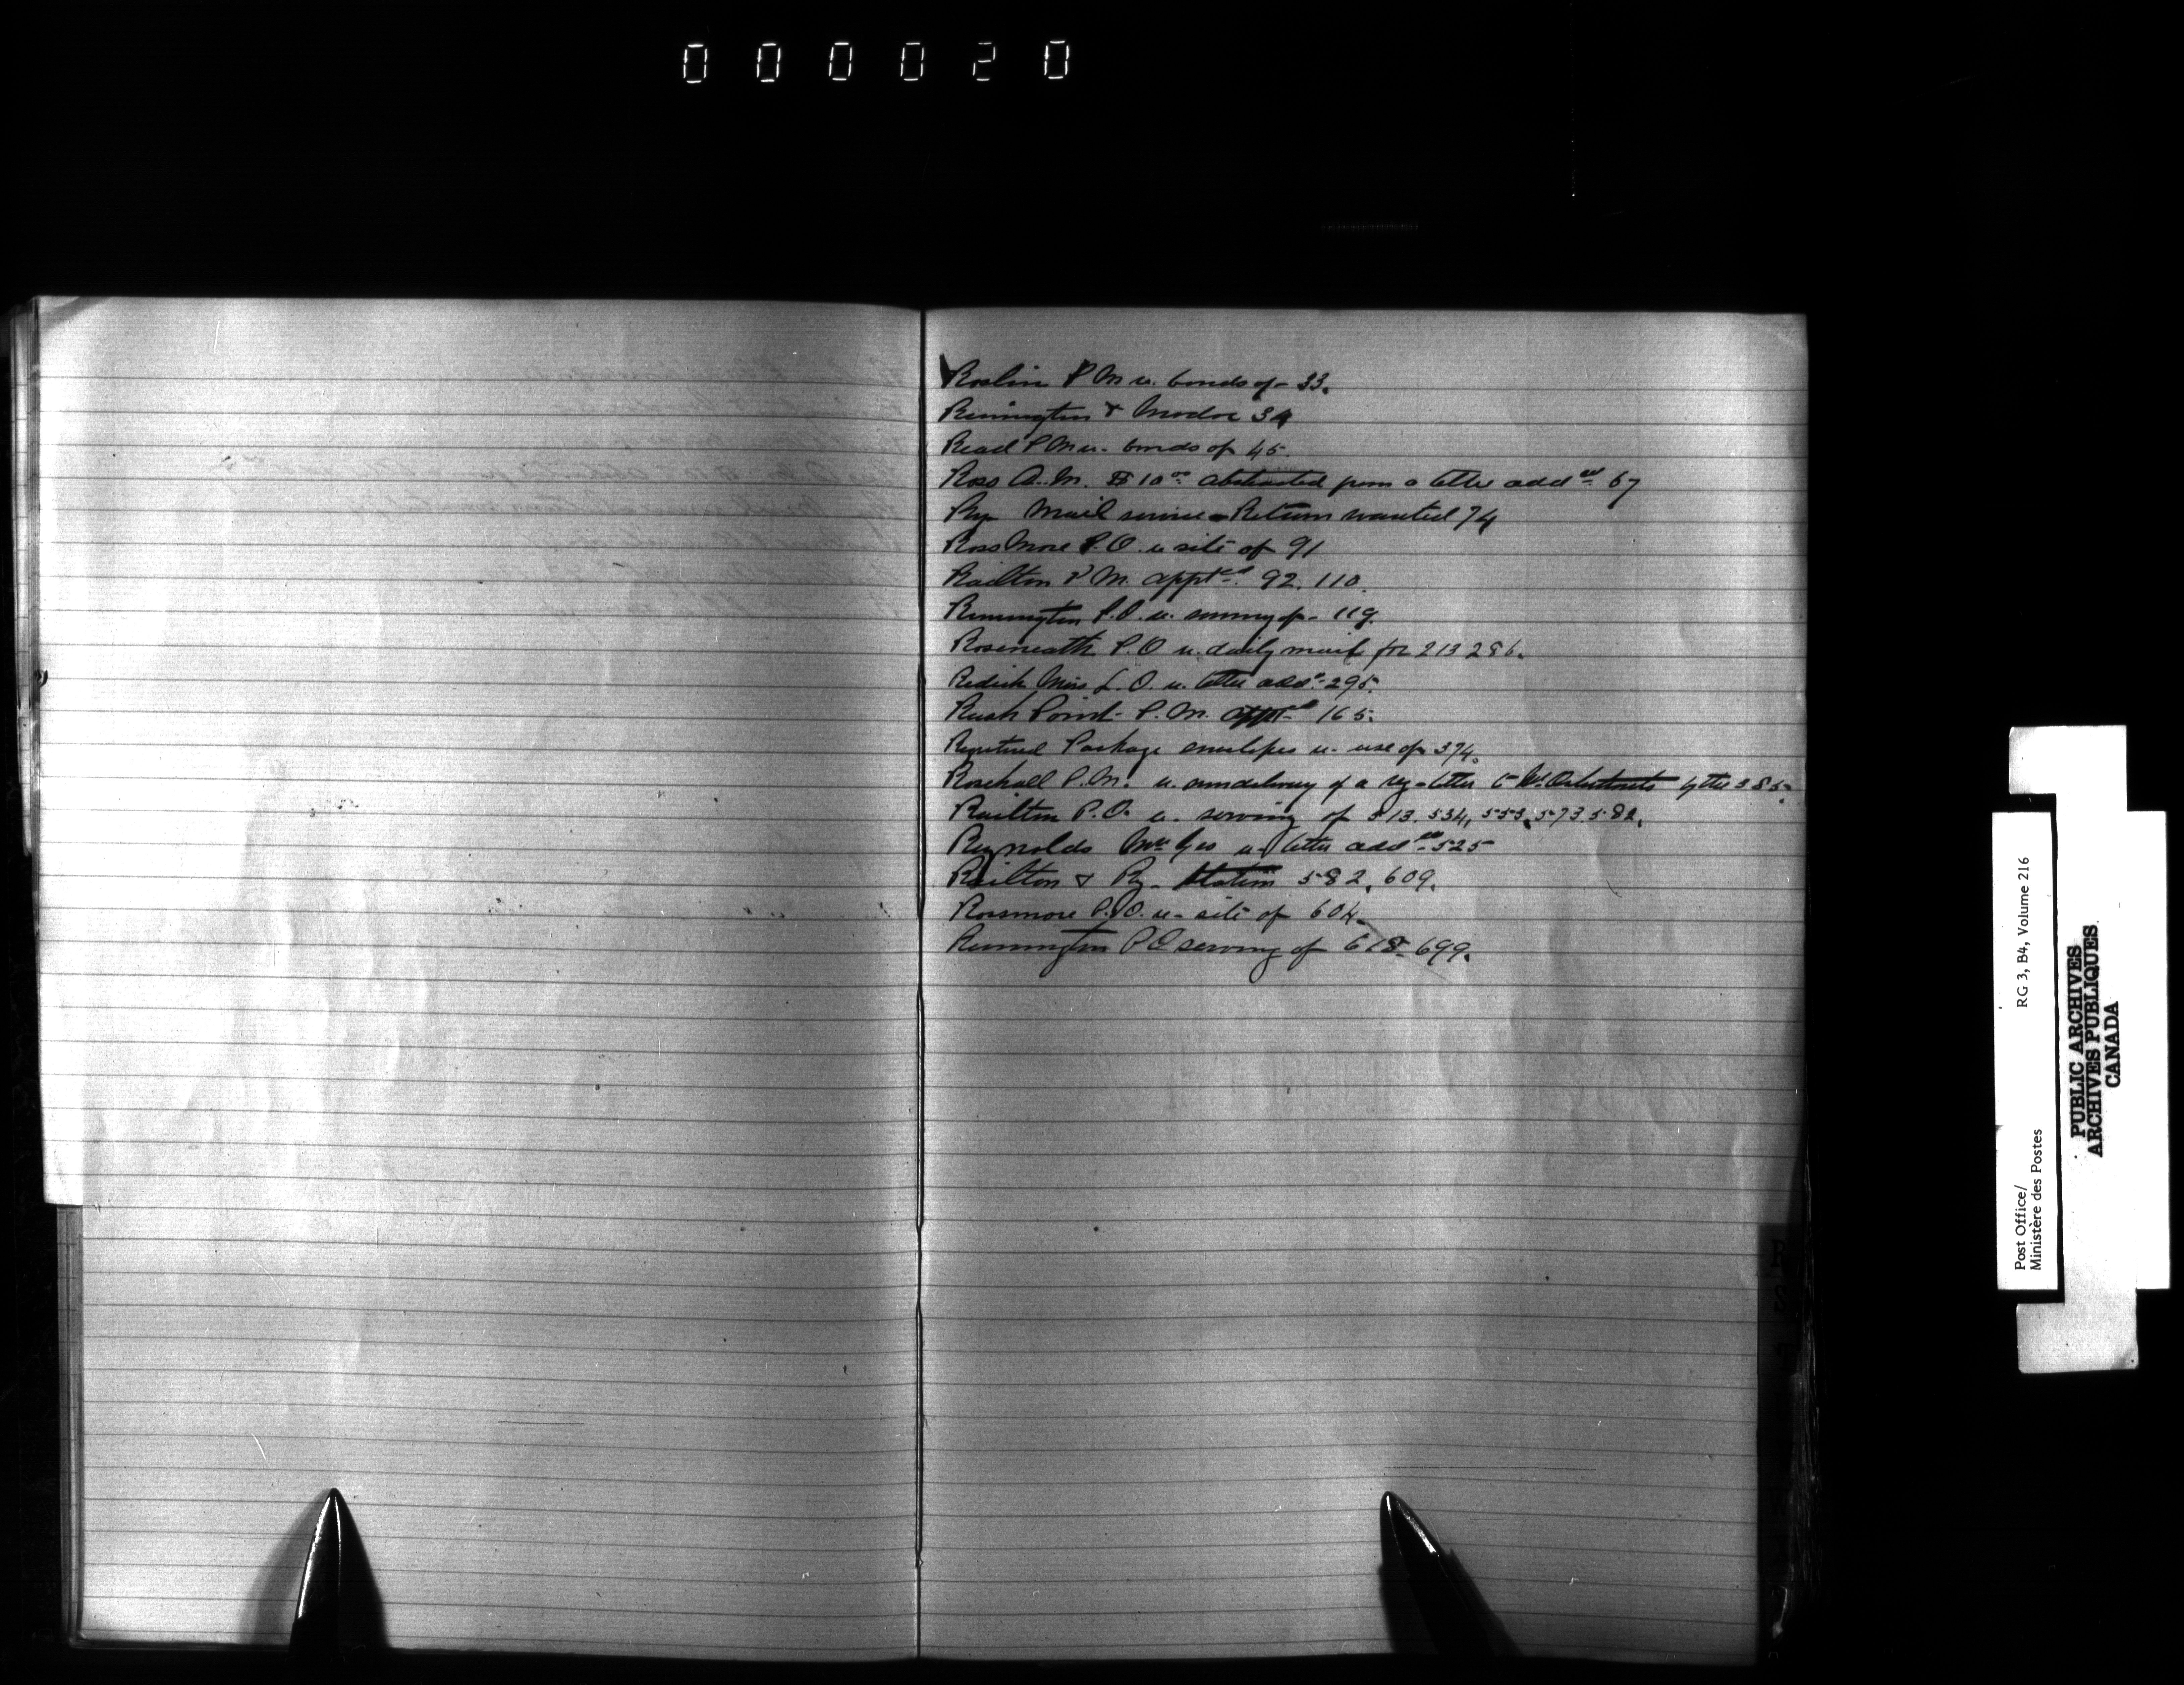 000020
Roslin P M u. bonds of 33.
Rimington & Madoc 34
Read P M u. bonds of 45.
Ross A. M. $10.00 abstracted from a letter addd. 67
Ry Mail service - Return wanted 74
Rossmore P.O. u site of 91
Railton P M. apptd. 92. 110.
Rimington P.O. u. serving of 119.
Roseneath P.O u. daily mail for 213 286.
Redick Miss L. O. u. letter addd. 295.
Rush Point P. M. apptd 165.
Registered Package envelopes u. use of 374.
Rosehall P. M. u. nondelivery of a reg letter to by the 385.
Railton P.O. u. serving of 513. 534, 553, 573. 582.
Reynolds Mr Geo u letter addd. 525
Railton & Ry. Station 582. 609.
Rossmore P.O. u. site of 604.
Rimington P O serving of 618. 699.
Post Office/ RG 3, B4, Volume 216
Ministère des Postes
PUBLIC ARCHIVES
ARCHIVES PUBLIQUES
CANADA